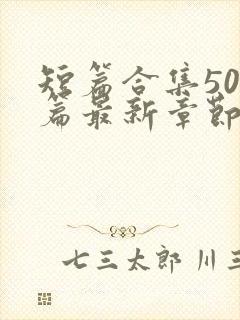 短篇合集50
篇最新章节
七三太郎 川三